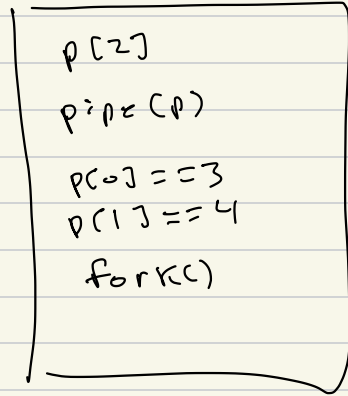 p[2]
pipe(p)
p[0]==3
p[1]==4
fork()